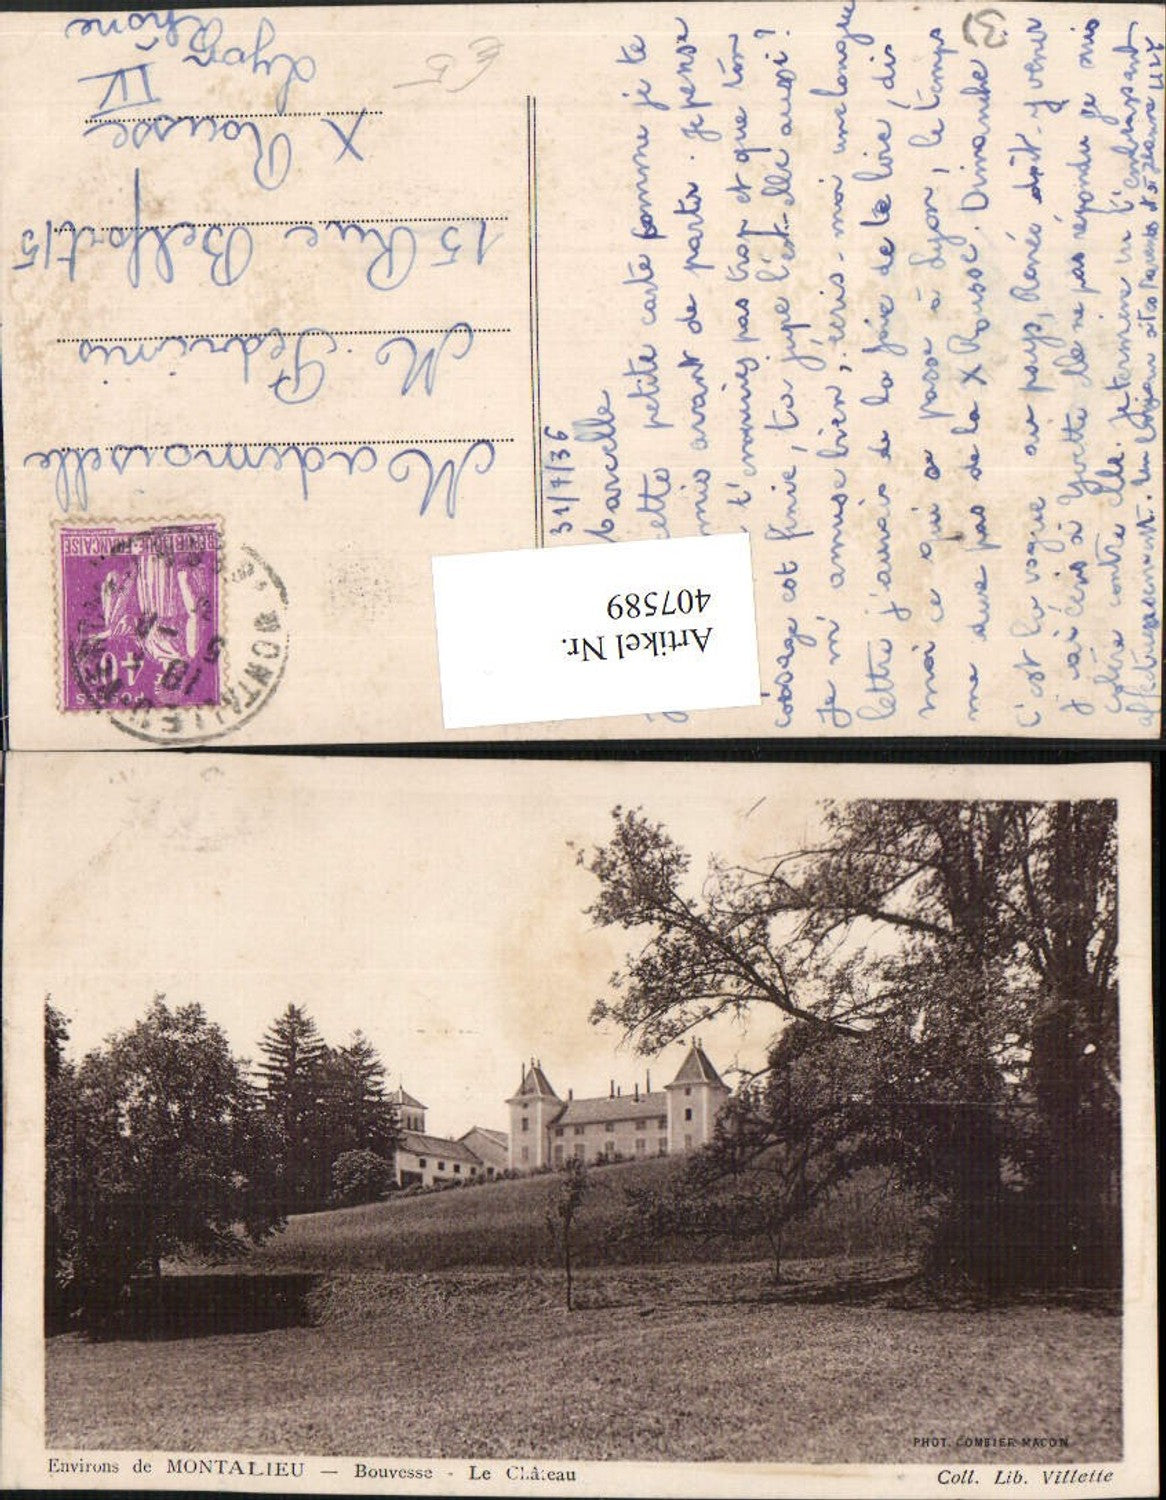 31/7/36
Marcelle
cette petite carte comme je te
mis avant de partir. Je pense
t'ennuies pas trop et que ton
corsage est finie, ta jupe l'est-elle aussi?
Je m'amuse bien, écris-moi une longue
lettre j'aurais de la joie de te lire, dis
moi ce qui se passe à Lyon, le temps
me dure pas de la X Rousse. Dimanche
c'est la vogue au pays, René doit y venir
J'ai écris à Yvette elle ne pas répondu je suis
colère contre elle. Je termine en t'embrassant
affectueusement. Un bonjour à tes Parents et à Jeanne
Mademoiselle
M. Pedrinis
15 Rue Belfort 15
X Rousse
IV
Lyon
Rhône
REPUBLIQUE FRANÇAISE
POSTES
MONTALIEU
Artikel Nr.
407589
PHOT. COMBIER MACON
Environs de MONTALIEU — Bouvesse - Le Château
Coll. Lib. Villette